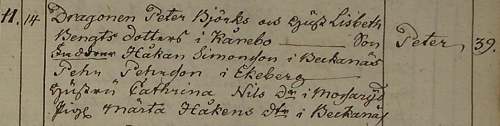 11. 14 Dragonen Peter Björks os Hust Lisbeth
Bengts dotters i Kånebo Son Peter, 39.
Håkan Simonsson i Beckanäs
Pehr Pehrsson i Ekeberg
Hustru Cathrina Nils Dr i
Pige Märta Håkens Dtr i Beckanäs